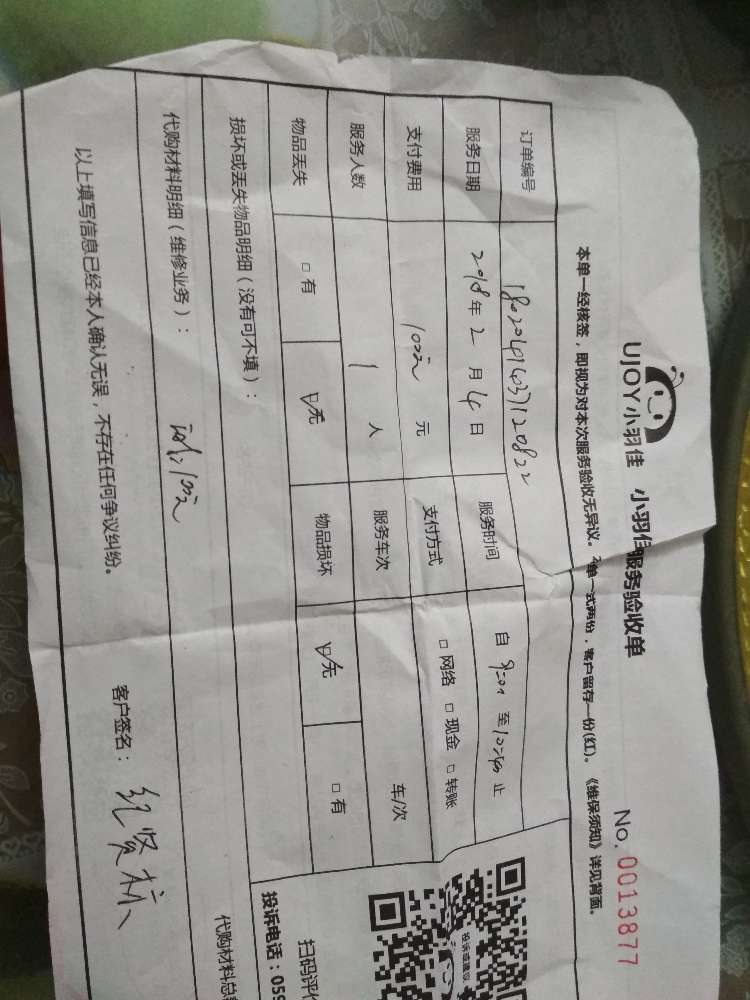 UJOY小羽佳 小羽佳服务验收单
No. 0013877
本单一经核签，即视为对本次服务验收无异议。本单一式两份，客户留存一份(红)。《维保须知》详见背面。
订单编号
服务日期 2018年2月4日 服务时间 自 9:00 至 10:40 止
支付费用 100元 元 支付方式 □网络 □现金 □转账
服务人数 1 人 服务车次 车/次
物品丢失 □有 □无 物品损坏 □无 □有
损坏或丢失物品明细（没有可不填）：
代购材料明细（维修业务）： 100元
代购材料总
以上填写信息已经本人确认无误，不存在任何争议纠纷。
客户签名：
投诉或建议
扫码评价
投诉电话：059